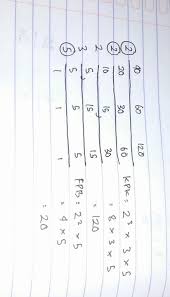 2 40 60 120
2 20 30 60
2 10 15 30
3 5 15 15
5 5 5 5
1 1 1
KPK = 2³ × 3 × 5
= 8 × 3 × 5
= 120
FPB = 2² × 5
= 4 × 5
= 20